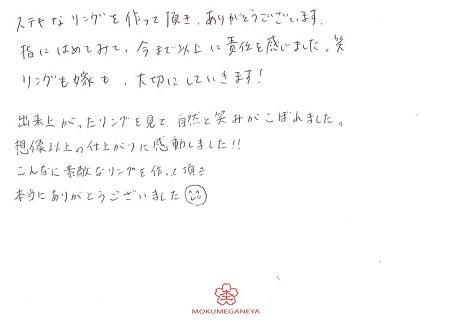 ステキなリングを作って頂き、ありがとうございます.
指にはめてみて、今まで以上に責任を感じました。笑
リングも嫁も、大切にしていきます!
出来上がったリングを見て、自然と笑みがこぼれました。
想像以上の仕上がりに感動しました!!
こんなに素敵なリングを作って頂き
本当にありがとうございました
MOKUMEGANEYA